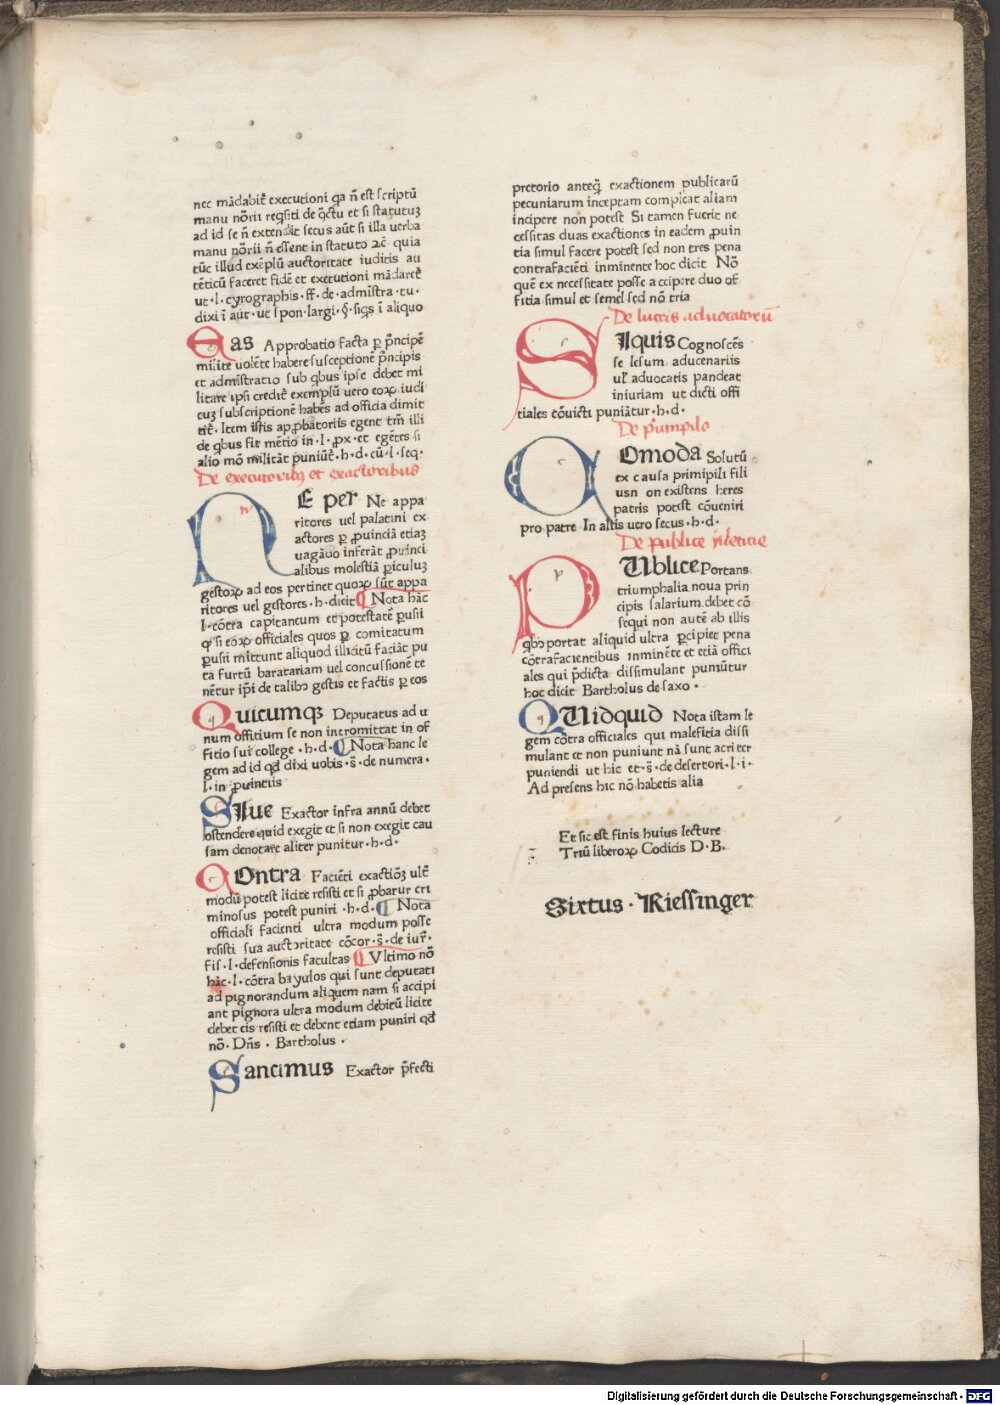 nec mādabit̄ executioni q̄a n̄ est scriptū
manu nōrii reqsiti de q̄ctu et si statutuȝ
ad id se n̄ extendit secus aūt si illa uerba
manu nōrii n̄ essent in statuto ⁊c̄ quia
tūc illud exēplū auctoritate iudicis au
tēticū faceret fidē et executioni mādaret̄
ut · l · cyrographis · ff · de · admīstra · tu ·
dixi ī aut · ut spon · largi · § · siqs ī aliquo
Eas Approbatio facta ꝑ p̄ncipē
milite uolēte habere susceptionē p̄ncipis
et admīstratio sub qbus ipse debet mi
litare ipsi credit̄ exemplū uero eoꝝ iudi
cuȝ subscriptionē habēs ad officia dimit
tit̄ · Item istis apꝓbatoriis egent tm̄ illi
de qbus fit mētio in · l · ꝓx · et egētes si
alio mō militāt puniūt̄ · h · d · cū · l · seq ·
De executoribꝰ et exactoribus
NE per Ne appa
ritores uel palatini ex
actores ꝑ ꝓuinciā etiaȝ
uagādo inferāt ꝓuinci
alibus molestiā ꝑiculuȝ
gestoꝝ ad eos pertinet quoꝝ sūt appa
ritores uel gestores · h · dicit Nota hāc
l · cōtra capitaneum et potestatē ꝑusii
q̄ si eoꝝ officiales quos ꝑ comitatum
ꝑusii mittunt aliquod illicitū faciāt pu
ta furtū baratariam uel concussionē te
nētur ip̄i de talibꝫ gestis et factis ꝑ eos
Quicumqȝ Deputatus ad u
num offitium se non intromittat in of
fitio sui college · h · d · Nota hanc le
gem ad id qd̄ dixi uobis · s̄ · de numera ·
l · in ꝓuinciis
Siue Exactor infra annū debet
ostendere quid exegit et si non exegit cau
sam denotare aliter punitur · h · d ·
COntra Faciēti exactiōȝ ult̄
modū potest licite resisti et si ꝓbarur cri
minosus potest puniri · h · d · Nota
officiali facienti ultra modum posse
resisti sua auctoritate cōcor · s̄ · de iur̄ ·
fis · l · defensionis facultas Vltimo nō
hāc · l · cōtra bayulos qui sunt deputati
ad pignorandum aliquem nam si accipi
ant pignora ultra modum debitū licite
debet eis resisti et debent etiam puniri qd̄
nō · Dn̄s · Bartholus ·
Sancimus Exactor p̄fecti
pretorio anteq̄ exactionem publicarū
pecuniarum inceptam compleat aliam
incipere non potest Si tamen fuerit ne
cessitas duas exactiones in eadem ꝓuin
tia simul facere potest sed non tres pena
contrafaciēti inminente hoc dicit Nō
quē ex necessitate posse accipere duo of
fitia simul et semel sed nō tria
De lucris aduocatorū
SIquis Cognoscēs
se lesum aducenariis
ul̄ aduocatis pandeat
iniuriam ut dicti offi
tiales cōuicti puniātur · h · d ·
De p̄mipilo
COmoda Solutū
ex causa primipili fili
usn on existens heres
patris potest cōueniri
pro patre In aliis uero secus · h · d ·
De publice leticie
PUblice Portans
triumphalia noua prin
cipis salarium debet cō
sequi non autē ab illis
qbꝫ portat aliquid ultra ꝑcipiet pena
cōtrafacientibus inminēte et etiā offici
ales qui p̄dicta dissimulant puniūtur
hoc dicit Bartholus de saxo ·
QUidquid Nota istam le
gem cōtra officiales qui malefitia dissi
mulant et non puniunt nā sunt acriter
puniendi ut hic et · s̄ · de desertori · l · i ·
Ad presens hic nō habetis alia
Et sic est finis huius lecture
Triū liberoꝝ Codicis D · B ·
Sixtus · Riessinger
Digitalisierung gefördert durch die Deutsche Forschungsgemeinschaft - DFG